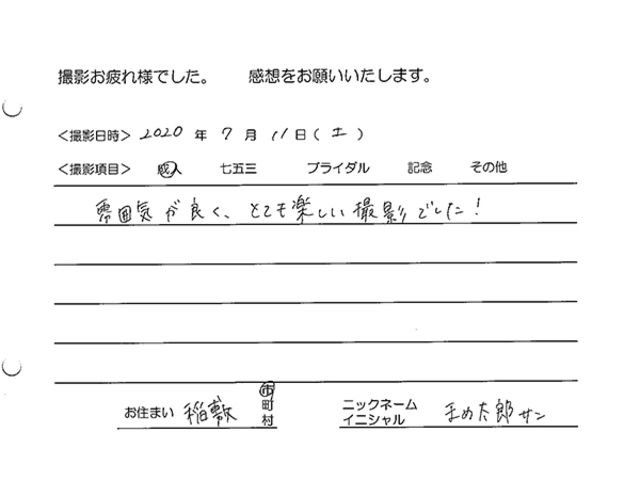 撮影お疲れ様でした。 感想をお願いいたします。
<撮影日時> 2020 年 7 月 11 日 ( 土 )
<撮影項目> 成人 七五三 ブライダル 記念 その他
雰囲気が良く、とても楽しい撮影でした!
お住まい 稲敷 市 町 村
ニックネーム イニシャル まめ太郎サン